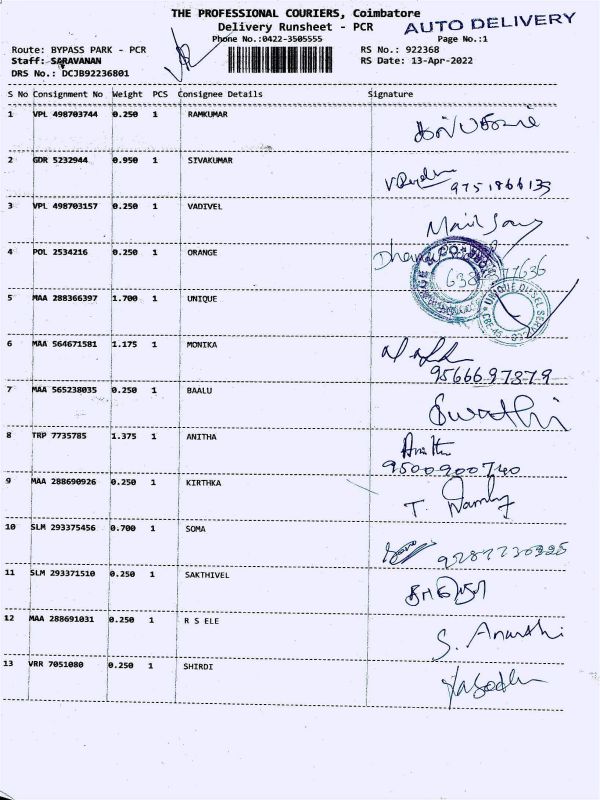 THE PROFESSIONAL COURIERS, Coimbatore
AUTO DELIVERY
Delivery Runsheet - PCR
Phone No.:0422-3505555
Page No.:1
Route: BYPASS PARK - PCR
RS No.: 922368
Staff: SARAVANAN
RS Date: 13-Apr-2022
DRS No.: DCJB92236801
S No Consignment No Weight PCS Consignee Details Signature
1 VPL 498703744 0.250 1 RAMKUMAR
2 GDR 5232944 0.950 1 SIVAKUMAR
9751866133
3 VPL 498703157 0.250 1 VADIVEL
4 POL 2534216 0.250 1 ORANGE
5 MAA 288366397 1.700 1 UNIQUE
UNIQUE DIESEL SERV
6 MAA 564671581 1.175 1 MONIKA
9566697879
7 MAA 565238035 0.250 1 BAALU
Swathi
8 TRP 7735785 1.375 1 ANITHA
Anitha
9500900740
9 MAA 288690926 0.250 1 KIRTHKA
10 SLM 293375456 0.700 1 SOMA
11 SLM 293371510 0.250 1 SAKTHIVEL
12 MAA 288691031 0.250 1 R S ELE
S. Ananthi
13 VRR 7051080 0.250 1 SHIRDI